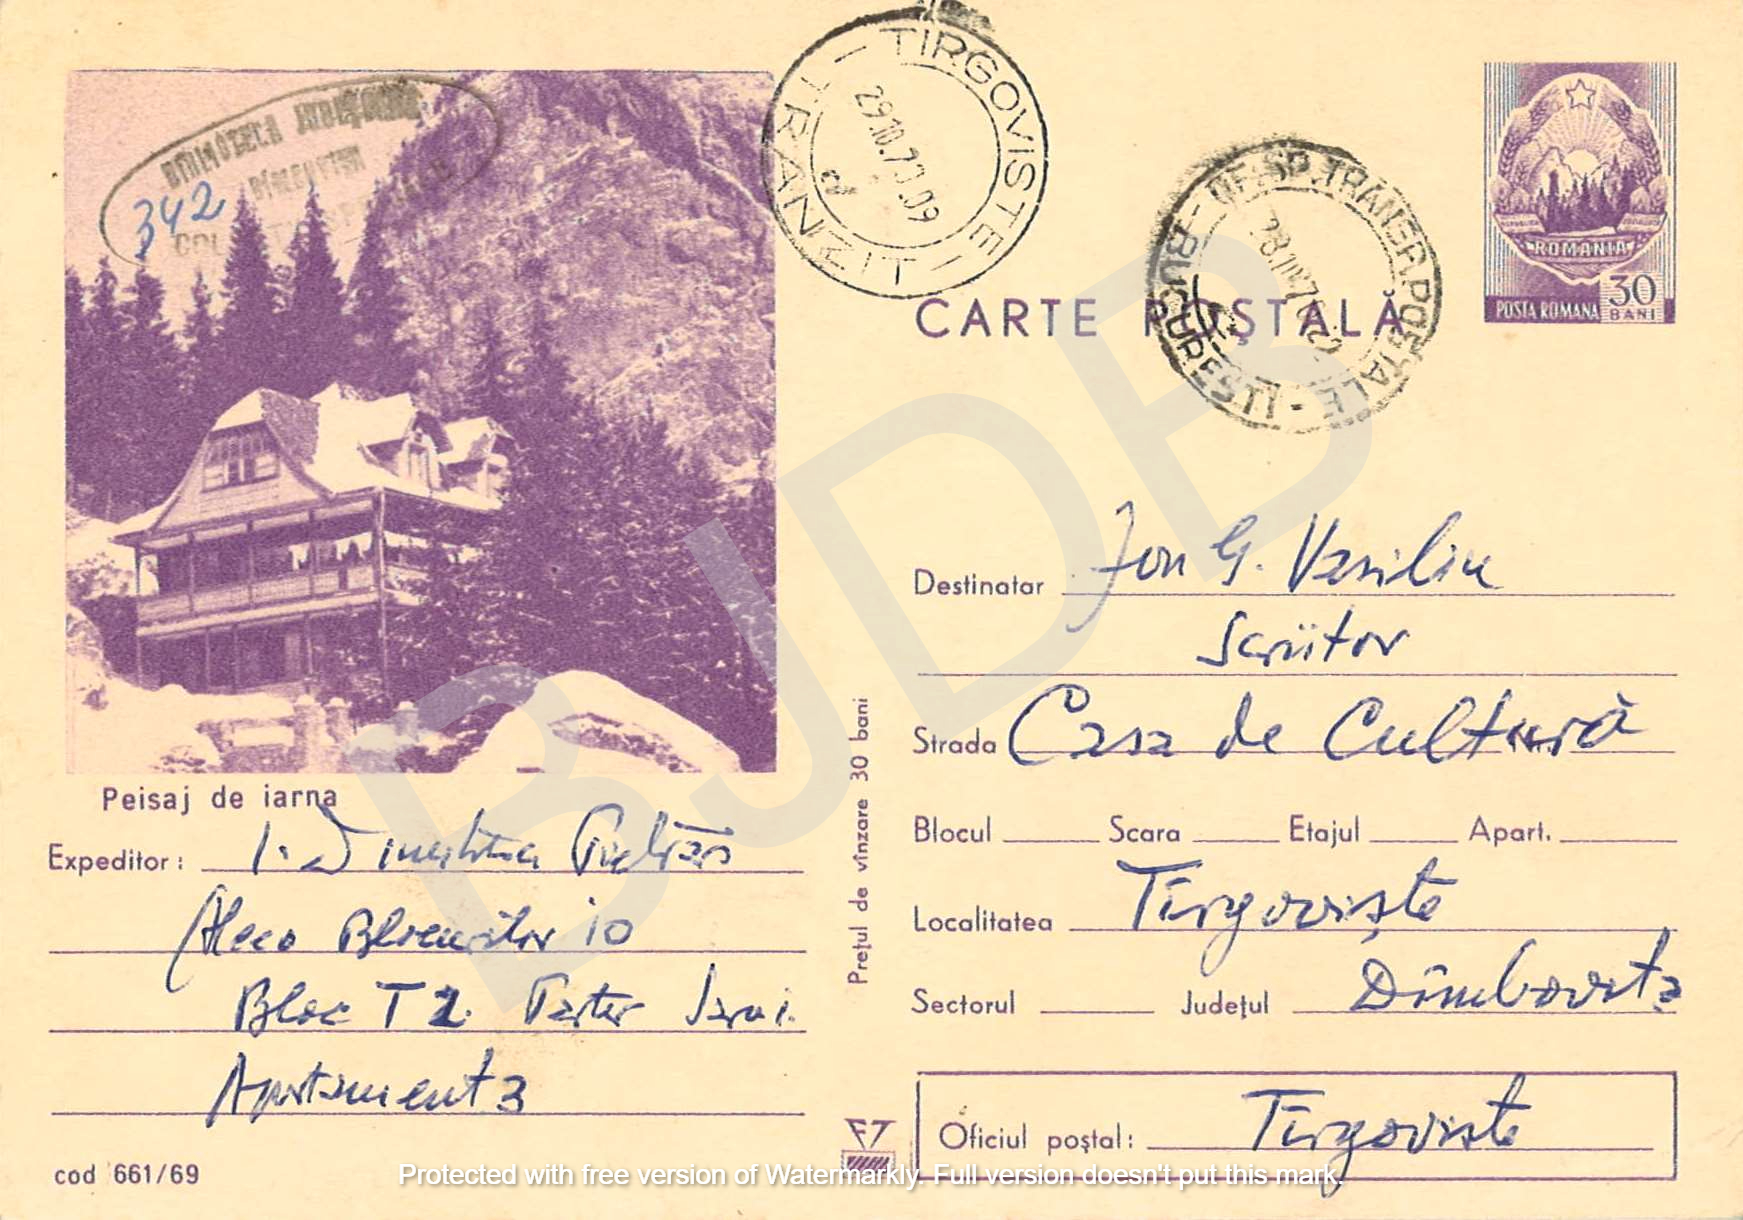 BIBLIOTECA JUDEȚEANĂ
DÎMBOVIȚA
342
TIRGOVISTE
TRANZIT
29.10.73.09
OF.SP.TRANSP.POSTALE
BUCUREȘTI
ROMANIA
POSTA ROMANA 30 BANI
CARTE POȘTALĂ
BJDB
Peisaj de iarna
Expeditor: I. Dimitrie
Aleea 10
Bloc T2. Parter
Apartament 3
cod 661/69
Prețul de vînzare 30 bani
Destinatar Ion G. Vasiliu
Scriitor
Strada Casa de Cultură
Blocul Scara Etajul Apart.
Localitatea Tîrgoviște
Sectorul Județul Dîmbovița
Oficiul poștal: Tîrgoviște
Protected with free version of Watermarkly. Full version doesn't put this mark.